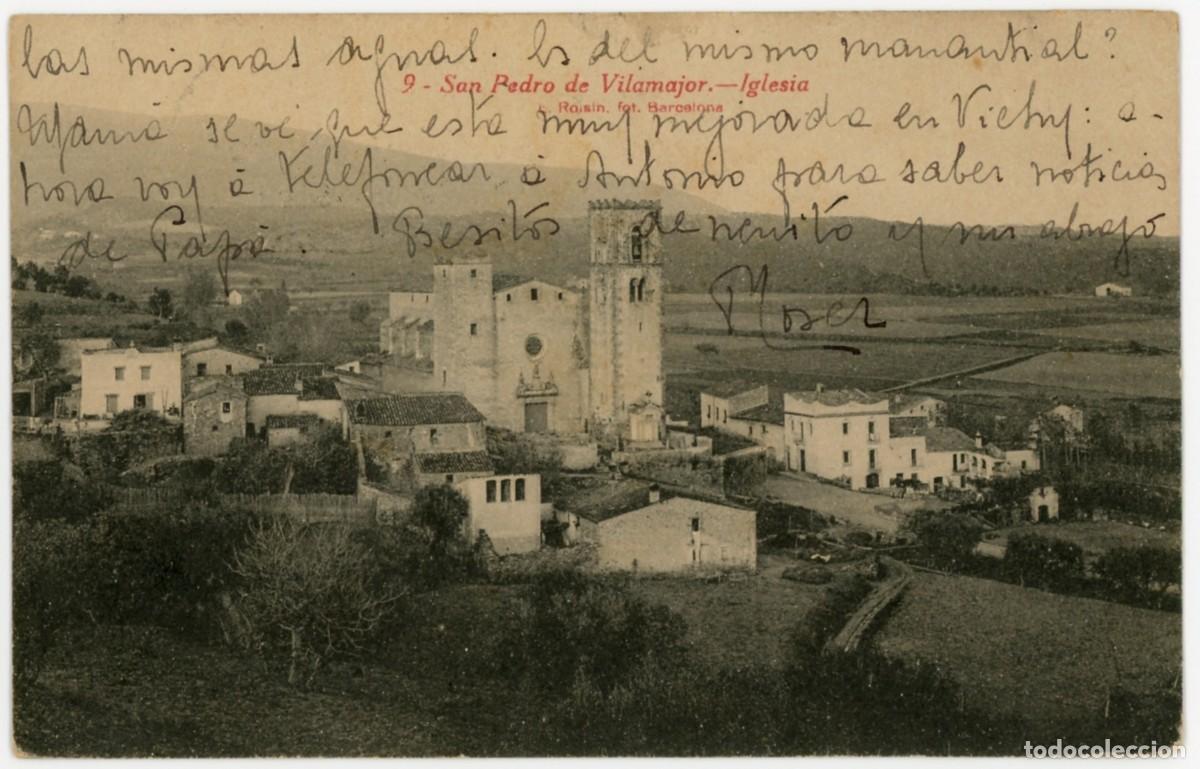 las mismas aguas. Es del mismo manantial?
9 - San Pedro de Vilamajor.—Iglesia
L. Roisin, fot. Barcelona
Mamá se ve que está muy mejorada en Vichy: a-
hora voy á telefonear á Antonio para saber noticias
de Papá. Besitos de nenito y un abrazo
Roser
todocoleccion